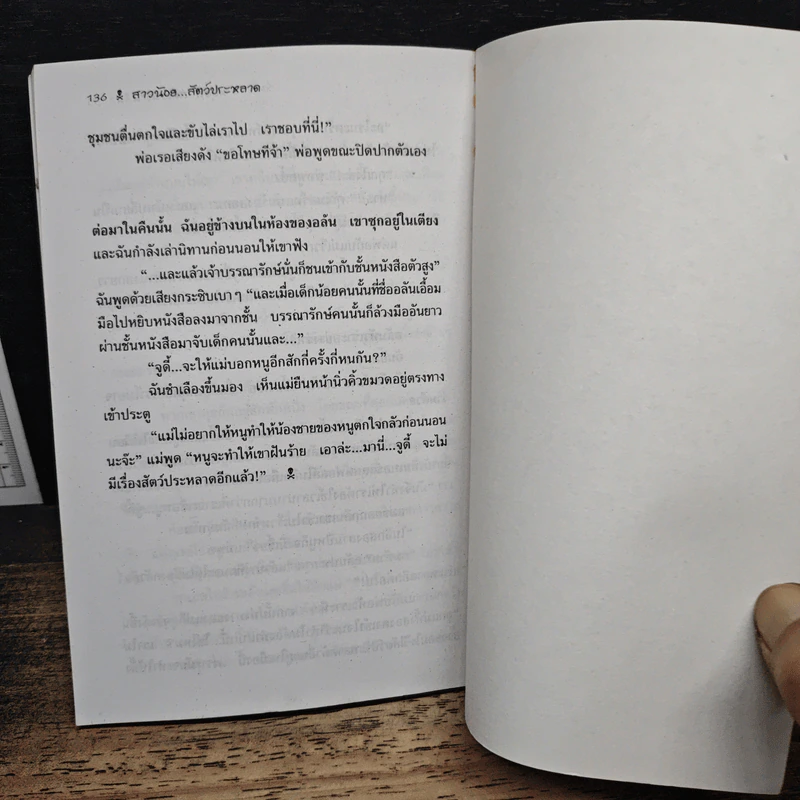 136 ☠ สาวน้อย...สัตว์ประหลาด
ชุมชนตื่นตกใจและขับไล่เราไป เราชอบที่นี่!”
พ่อเรอเสียงดัง “ขอโทษทีจ้า” พ่อพูดขณะปิดปากตัวเอง
ต่อมาในคืนนั้น ฉันอยู่ข้างบนในห้องของอลัน เขาซุกอยู่ในเตียง
และฉันกำลังเล่านิทานก่อนนอนให้เขาฟัง
“...และแล้วเจ้าบรรณารักษ์นั่นก็ชนเข้ากับชั้นหนังสือตัวสูง”
ฉันพูดด้วยเสียงกระซิบเบา ๆ “และเมื่อเด็กน้อยคนนั้นที่ชื่ออลันเอื้อม
มือไปหยิบหนังสือลงมาจากชั้น บรรณารักษ์คนนั้นก็ล้วงมืออันยาว
ผ่านชั้นหนังสือมาจับเด็กคนนั้นและ...”
“จูดี้...จะให้แม่บอกหนูอีกสักกี่ครั้งกี่หนกัน?”
ฉันชำเลืองขึ้นมอง เห็นแม่ยืนหน้านิ่วคิ้วขมวดอยู่ตรงทาง
เข้าประตู
“แม่ไม่อยากให้หนูทำให้น้องชายของหนูตกใจกลัวก่อนนอน
นะจ๊ะ” แม่พูด “หนูจะทำให้เขาฝันร้าย เอาล่ะ...มานี่...จูดี้ จะไม่
มีเรื่องสัตว์ประหลาดอีกแล้ว!” ☠